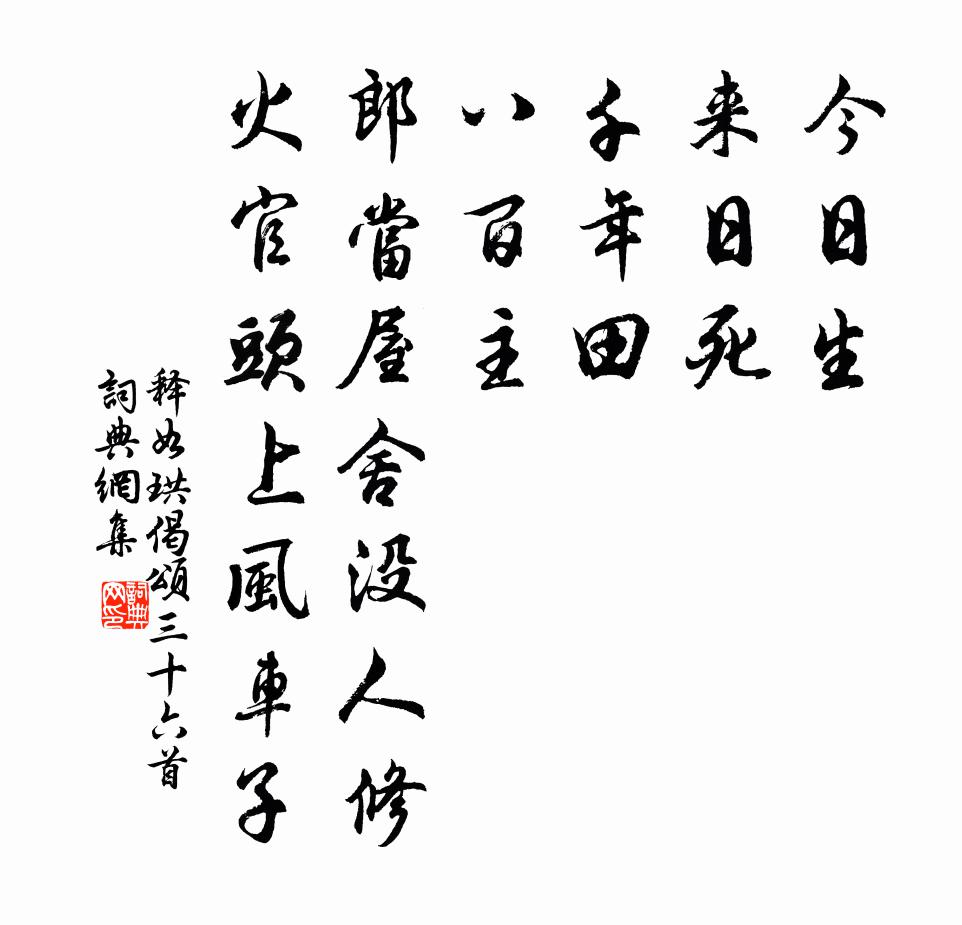 今日生
来日死
千年田
八百主
郎當屋舍没人修
火官頭上風車子
释如珙偈頌三十六首
詞典網集
詞典网印